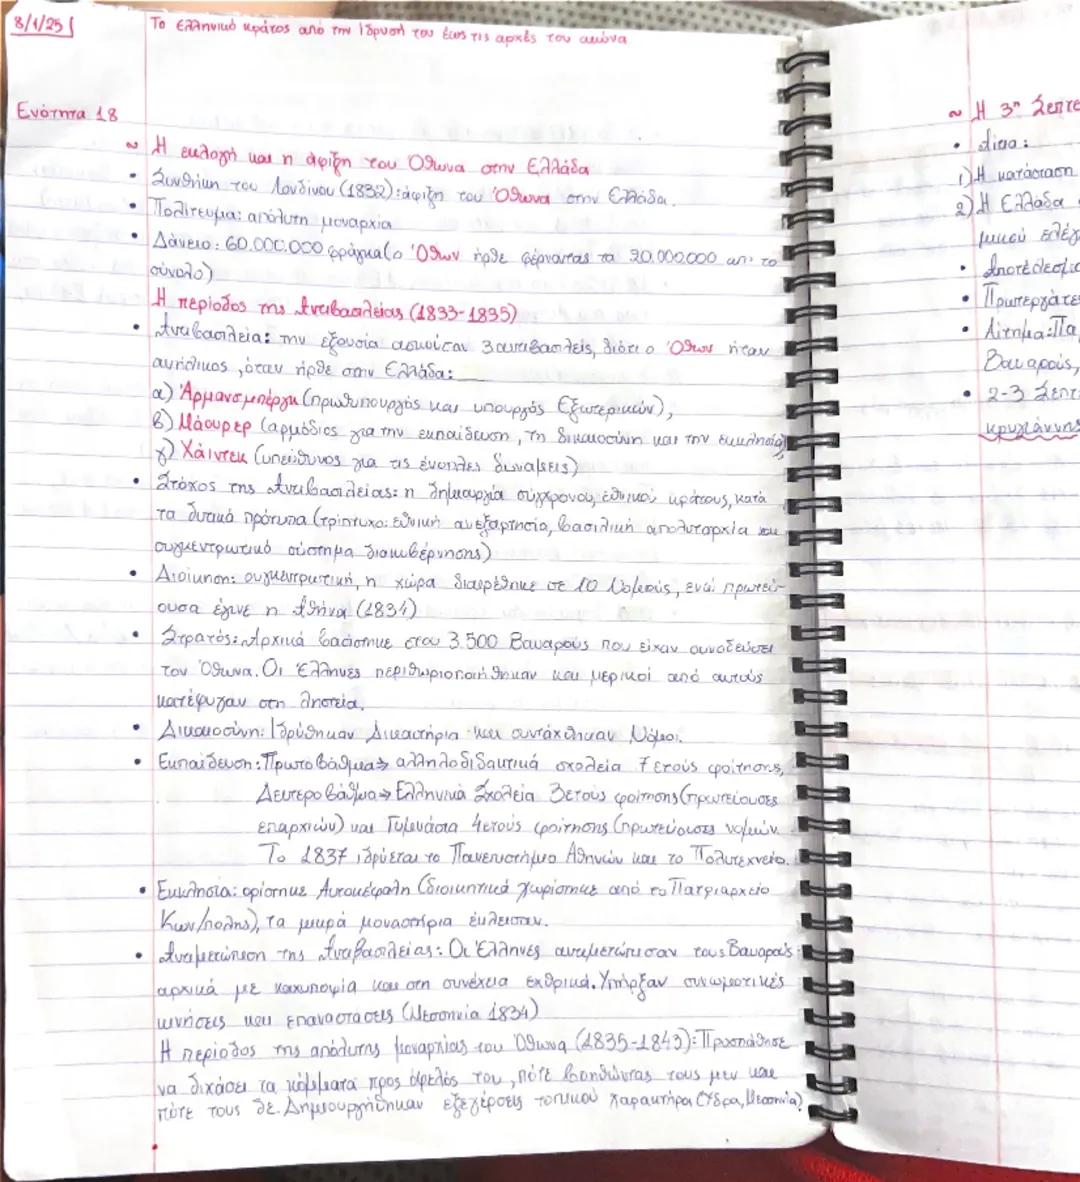 8/1/25
Το ελληνικό κράτος από την ίδρυσή του έως τις αρχές του αιώνα
Ενότητα 18
~ Η εκλογή και η άφιξη του Όθωνα στην Ελλάδα
• Συνθήκη του Λονδίνου (1832): άφιξη του Όθωνα στην Ελλάδα.
• Πολίτευμα: απόλυτη μοναρχία
• Δάνειο: 60.000.000 φράγκα (ο Όθων ήρθε φέρνοντας τα 20.000.000 απ' το
σύνολο)
Η περίοδος της Αντιβασιλείας (1833-1835)
• Αντιβασιλεία: την εξουσία ασκούσαν 3 αντιβασιλείς, διότι ο Όθων ήταν
ανήλικος, όταν ήρθε στην Ελλάδα:
α) Άρμανσμπέργκ (πρωθυπουργός και υπουργός Εξωτερικών),
β) Μάουρερ (αρμόδιος για την εκπαίδευση, τη δικαιοσύνη και την εκκλησία)
γ) Χάιντεκ (υπεύθυνος για τις ένοπλες δυνάμεις)
• Στόχος της Αντιβασιλείας: η δημιουργία σύγχρονου, εθνικού κράτους, κατά
τα δυτικά πρότυπα (τρίπτυχο: εθνική ανεξαρτησία, βασιλική απολυταρχία και
συγκεντρωτικό σύστημα διακυβέρνησης)
• Διοίκηση: συγκεντρωτική, η χώρα διαιρέθηκε σε 10 Νομούς, ενώ πρωτεύ-
ουσα έγινε η Αθήνα (1834)
• Στρατός: Αρχικά βασίστηκε στου 3.500 Βαυαρούς που είχαν συνοδεύσει
τον Όθωνα. Οι Έλληνες περιθωριοποιήθηκαν και μερικοί από αυτούς
κατέφυγαν στη ληστεία.
• Δικαιοσύνη: Ιδρύθηκαν Δικαστήρια και συντάχθηκαν Νόμοι.
• Εκπαίδευση: Πρωτοβάθμια → αλληλοδιδακτικά σχολεία 7ετούς φοίτησης,
Δευτεροβάθμια → Ελληνικά Σχολεία 3ετούς φοίτησης (πρωτεύουσες
επαρχιών) και Γυμνάσια 4ετούς φοίτησης (πρωτεύουσες νομών.
Το 1837 ιδρύεται το Πανεπιστήμιο Αθηνών και το Πολυτεχνείο.
• Εκκλησία: ορίστηκε Αυτοκέφαλη (διοικητικά χωρίστηκε από το Πατριαρχείο
Κων/πολης), τα μικρά μοναστήρια έκλεισαν.
• Αντιμετώπιση της Αντιβασιλείας: Οι Έλληνες αντιμετώπισαν τους Βαυαρούς
αρχικά με καχυποψία και στη συνέχεια εχθρικά. Υπήρξαν συνωμοτικές
κινήσεις και επαναστάσεις (Μεσσηνία 1834)
Η περίοδος της απόλυτης μοναρχίας του Όθωνα (1835-1843): Προσπάθησε
να διχάσει τα κόμματα προς όφελός του, πότε βοηθώντας τους μεν και
πότε τους δε. Δημιουργήθηκαν εξεγέρσεις τοπικού χαρακτήρα (Ύδρα, Μεσσηνία)
~ Η 3η Σεπτε
• Αίτια:
1) Η κατάσταση
2) Η Ελλάδα
μικού ελέγ
• Αποτέλεσμα
• Πρωτεργάτες
• Αίτημα: Να
Βαυαρούς,
• 2-3 Σεπτ